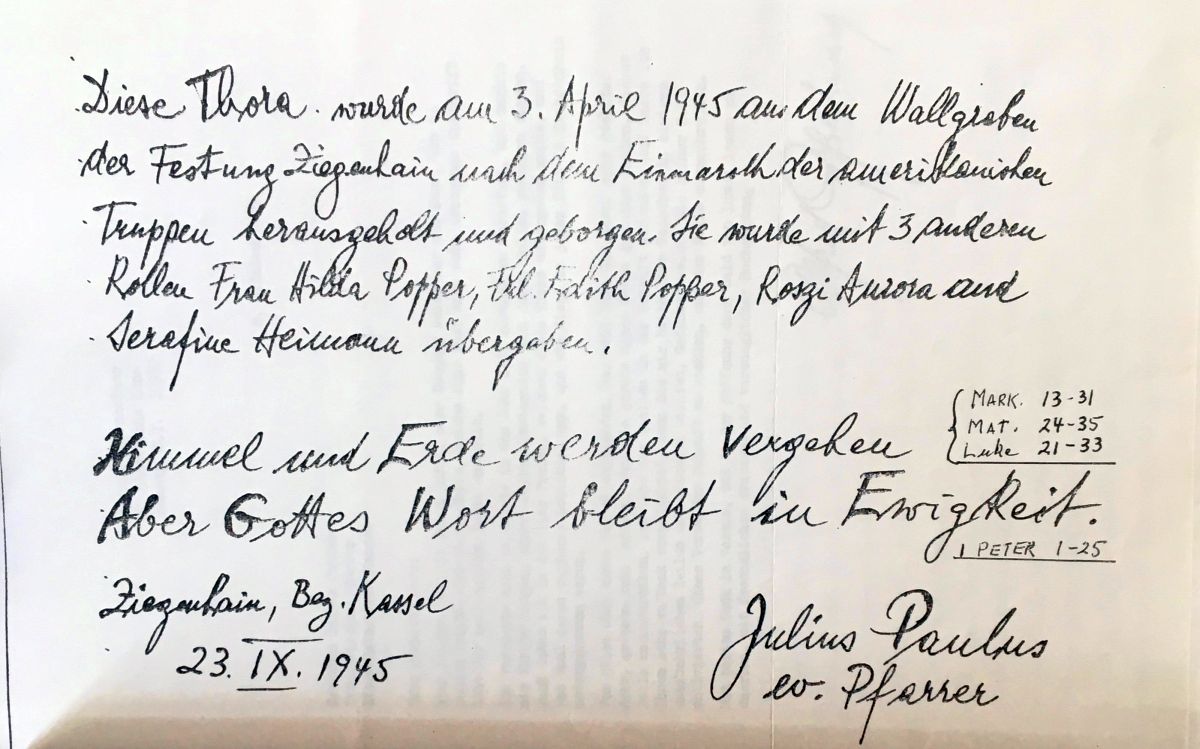 Diese Thora wurde am 3. April 1945 aus dem Wallgraben
der Festung Ziegenhain nach dem Einmarsch der amerikanischen
Truppen herausgeholt und geborgen. Sie wurde mit 3 anderen
Rollen Frau Hilda Popper, Frl. Edith Popper, Roszi Aurora und
Serafine Heimann übergaben.
Himmel und Erde werden vergehen
MARK. 13-31
MAT. 24-35
Luke 21-33
Aber Gottes Wort bleibt in Ewigkeit.
1 PETER 1-25
Ziegenhain, Bez. Kassel
23. IX. 1945
Julius Paulus
ev. Pfarrer